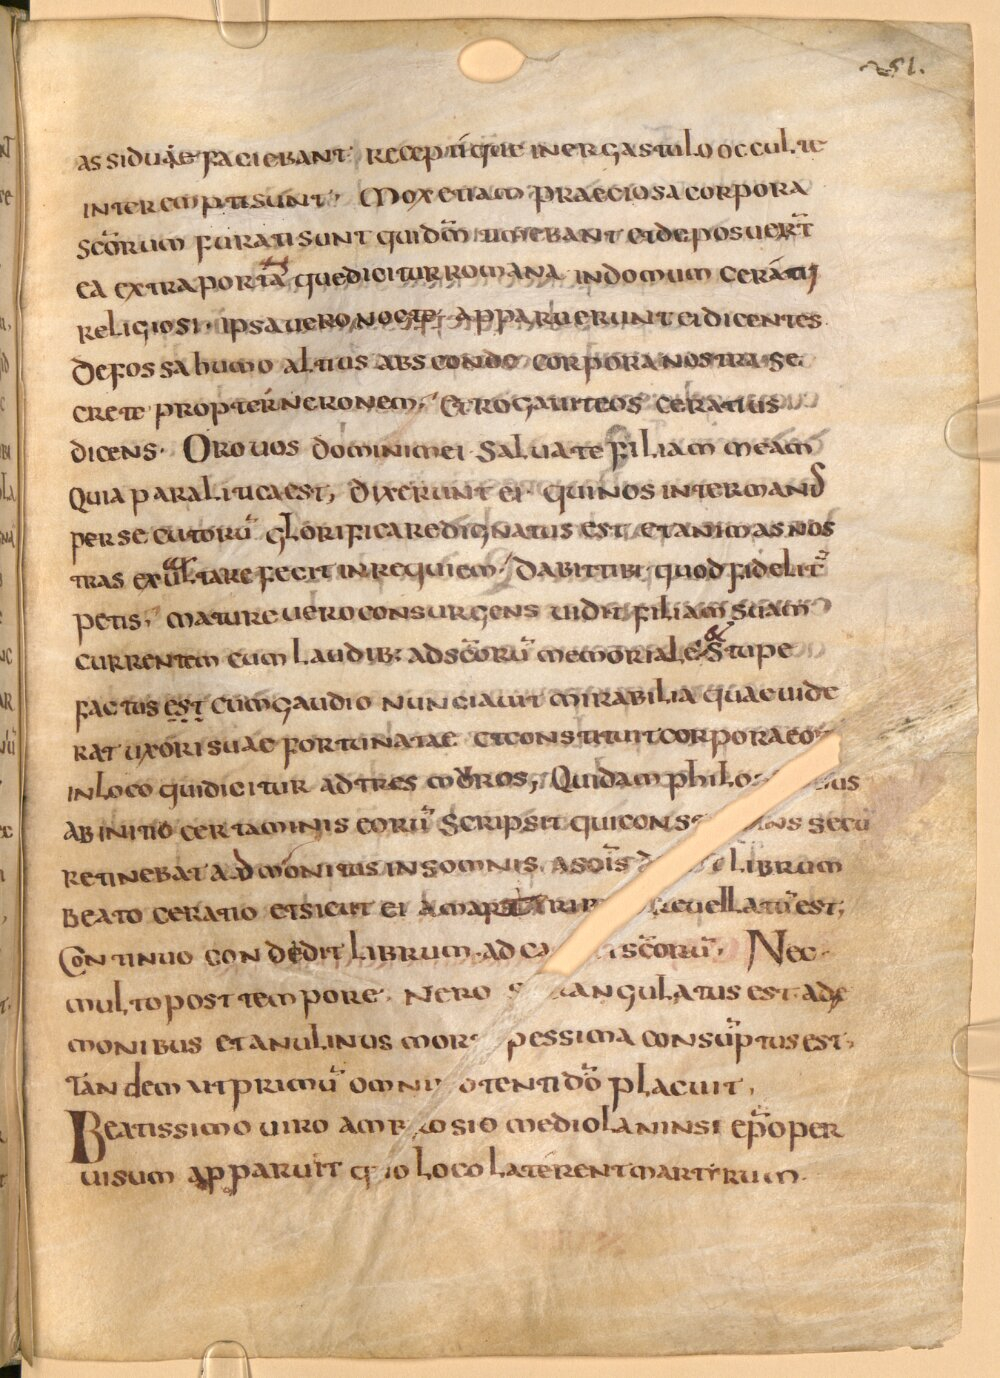 251.
assiduae faciebant receptique in ergastulo occulte
interempti sunt. Mox etiam praeciosa corpora
scōrum furati sunt quidā et deposuer̄t
ea extra portā que dicitur romana in domum cerātij
religiosi. ipsa uero nocte apparuerunt ei dicentes
Defossa humo altius absconde corpora nostra se
crete propter neronem, Et rogauit eos ceratius
dicens. Oro uos domini mei saluate filiam meam
quia paralitica est, dixerunt ei qui nos inter man
persecutorū glorificare dignatus est, et animas nos
tras exultare fecit in requiem, Dabit tibi quod fidelit̄
petis, mature uero consurgens uidit filiam suam
currentem cum laudib: ad scōrū memoriale, & stupe
factus est cum gaudio nunciauit mirabilia quae uide
rat uxori suae fortunatae et constituit corpora
in loco qui dicitur ad tres moros, Quidam
ab initio certaminis eorū scripsit qui secū
retinebat admonitus in somnis a scīs librum
beato ceratio et sicut ei a reuellatū est;
Continuo condedit librum ad scōrū. Nec
multo post tempore. Nero est a de
monibus et anulinus pessima consūptus est,
Tandem ut primū dō placuit,
Beatissimo uiro mediolaninsi ep̄o per
uisum apparuit loco laterent martirum.